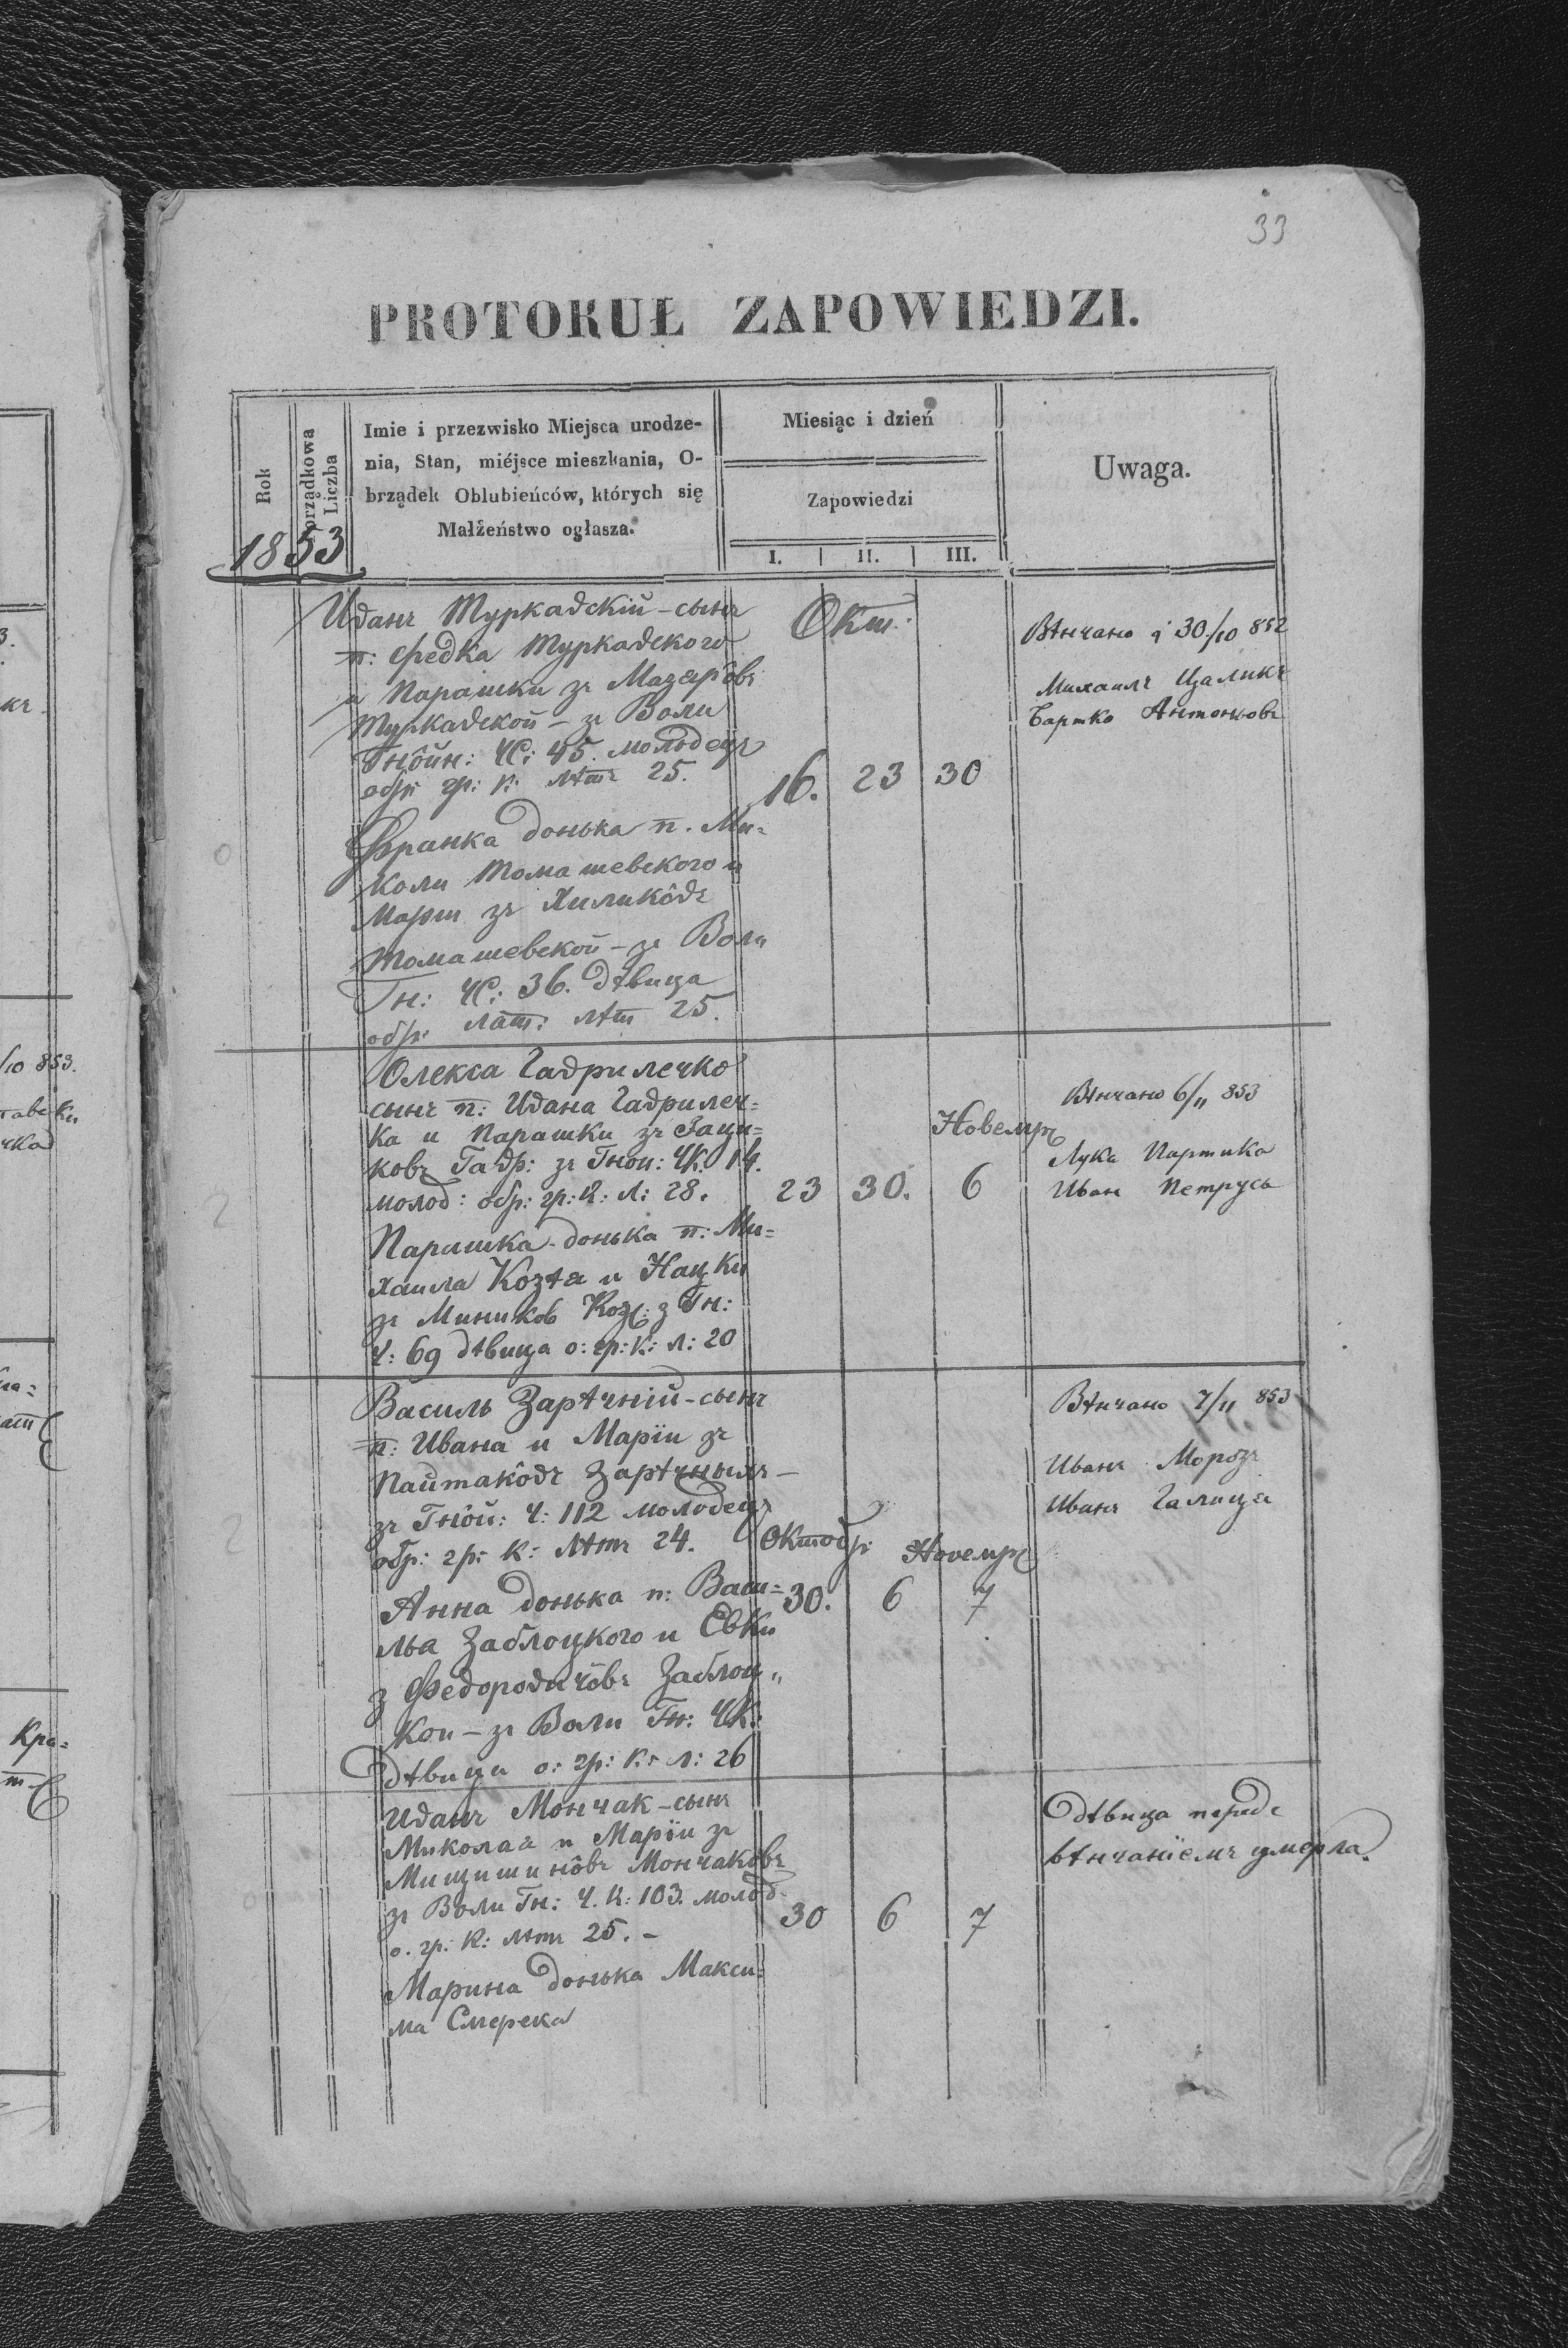 33
PROTOKUŁ ZAPOWIEDZI.
Rok
porządkowa
Liczba
Imie i przezwisko Miejsca urodze-
nia, Stan, miéjsce mieszkania, O-
brządek Oblubieńców, których się
Małżeństwo ogłasza.
Miesiąc i dzień
Zapowiedzi
I. II. III.
Uwaga.
1853
Иванъ Туркавскій - сынъ
п: Федка Туркавского
и Парашки зъ Мазарôвъ
Туркавской - зъ Воли
Гнôйн: ЧС: 45. молодецъ
обр: гр: к: лѣтъ 25.
Окт.
16. 23 30
Вѣнчано 30/10 852
Михаилъ Цаликъ
Бартко Антоновъ
Франка донька п. Ми=
коли Томашевского и
Маріи зъ Хиликôвъ
Томашевской - зъ Воли
Гн: ЧС: 36. дѣвица
обр: лат: лѣт 25.
Олекса Гаврилечко
сынъ п: Ивана Гаврилеч=
ка и Парашки зъ Заци=
ковъ Гавр: зъ Гнои: ЧК: 14.
молод: обр: гр: к: л: 28.
Новемр
23 30. 6
Вѣнчано 6/11 853
Лука Партика
Иван Петрусь
Парашка донька п: Ми=
хаила Козѣя и Нацки
зъ Миников Коз: з Гн:
ч: 69 дѣвица о: гр: к: л: 20
Василь Зарѣчній - сынъ
п: Ивана и Маріи зъ
Пайтакôвъ Зарѣчныхъ -
зъ Гнôй: ч: 112 молодецъ
обр: гр: к: лѣтъ 24.
Октобр: Новемр
30. 6 7
Вѣнчано 7/11 853
Иванъ Морозъ
Иванъ Галица
Анна донька п: Васи=
лья Заблоцкого и Евки
з Федоровичôвъ Заблоц„
кои - зъ Воли Гн: ЧК:
дѣвица о: гр: к: л: 26
Иванъ Мончак - сынъ
Миколая и Маріи зъ
Мицишинôвъ Мончаковъ
зъ Воли Гн: Ч. К: 103. молод
о. гр: к: лѣтъ 25. -
30 6 7
Дѣвица передъ
вѣнчаніемъ умерла.
Марина донька Макси=
ма Смерека